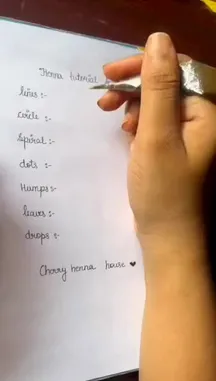 Henna tutorial
lines :-
circle :-
Spiral :-
dots :-
Humps :-
leaves :-
drops :-
Cherry henna house ♥